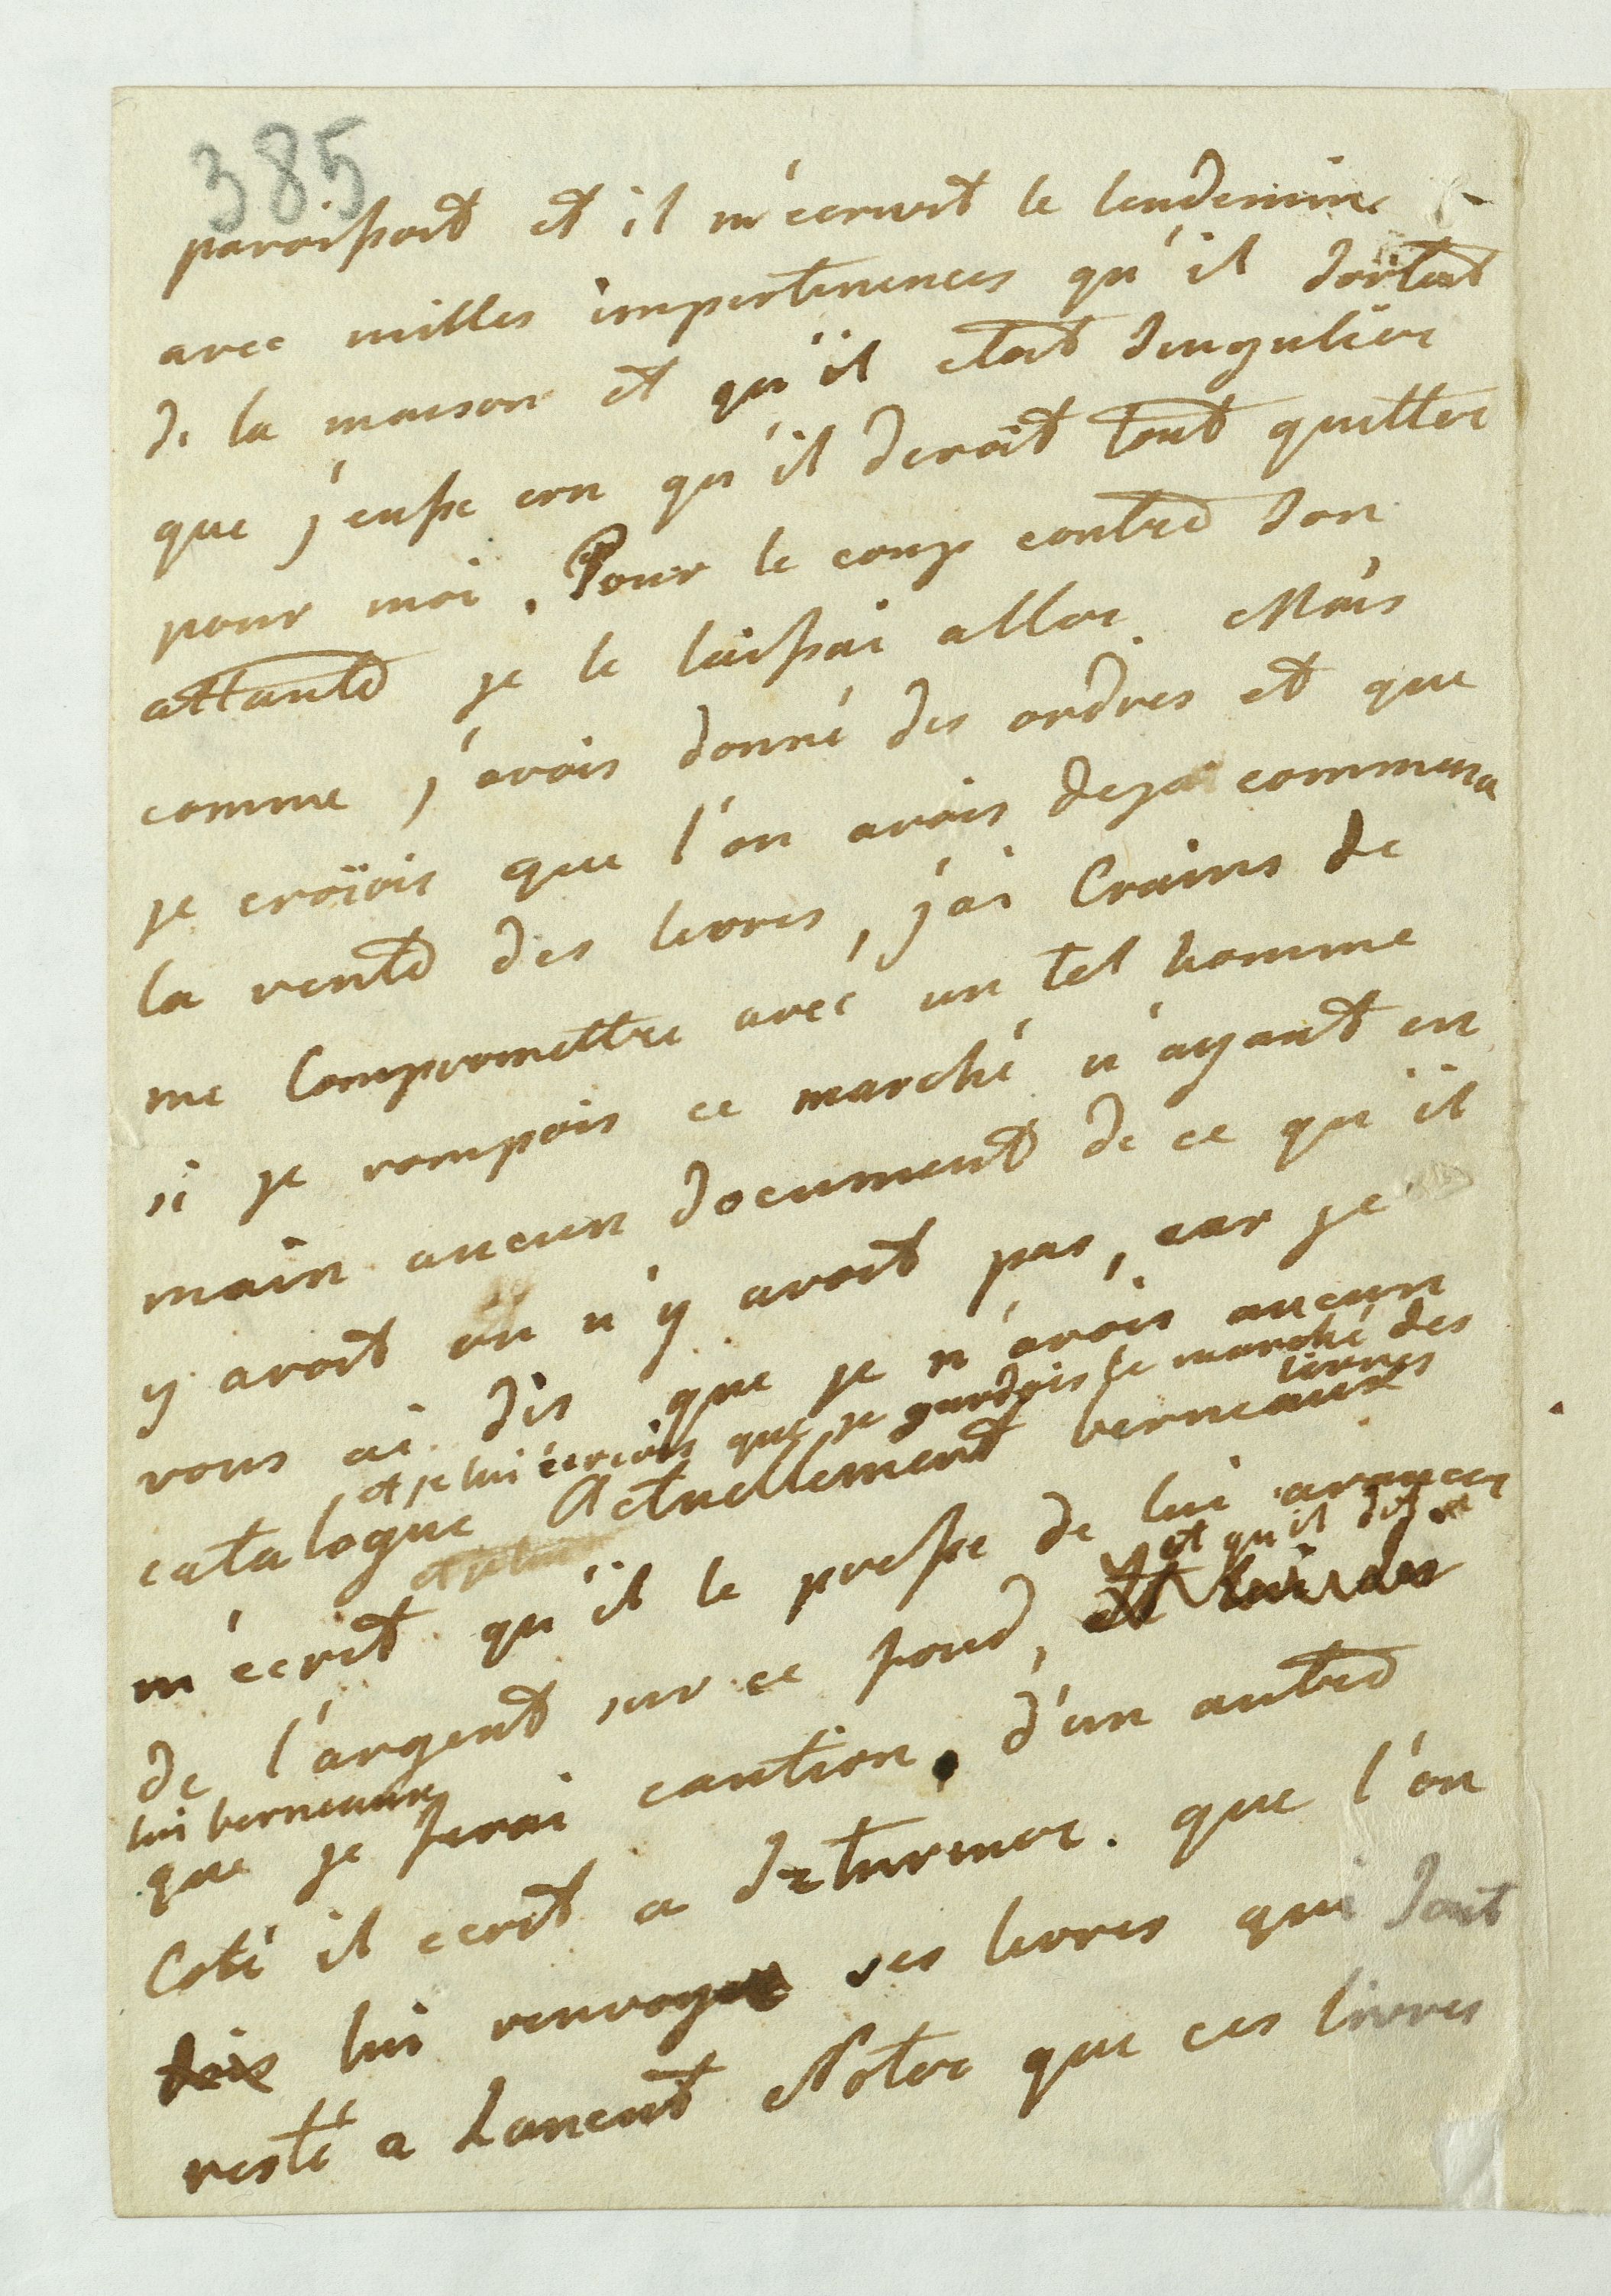 385
paroissoit et il m'ecrivit le lendemin
avec milles impertenences qu'il sortoit
de la maison et qu'il etoit singulier
que j'eusse cru qu'il devoit tout quitter
pour moi. Pour le coup contre son
attante je le laissai aller. Mais
comme j'avois donné des ordres et que
je croïois que l'on avois deja commena
la vente des livres, j'ai Crains de
me Compromettre avec un tel homme
si je rompois ce marché n'ayant en
main aucun document de ce qu'il
y avoit ou n'y avoit pas, car je
vous ai dis que je n'avois aucun
et je lui ecrivis que je gardois le marché des
livres
catalogue Actuellement berneaux
m'ecrit qu'il le presse de lui avancer
et qu'il dit a
de l'argent sur ce fond,
lui berneaux
que je serai caution. d'un autre
Coté il ecrit a Deturmer. que l'on
lui renvoye ses livres qui sont
resté a Lancut Noter que ces livres